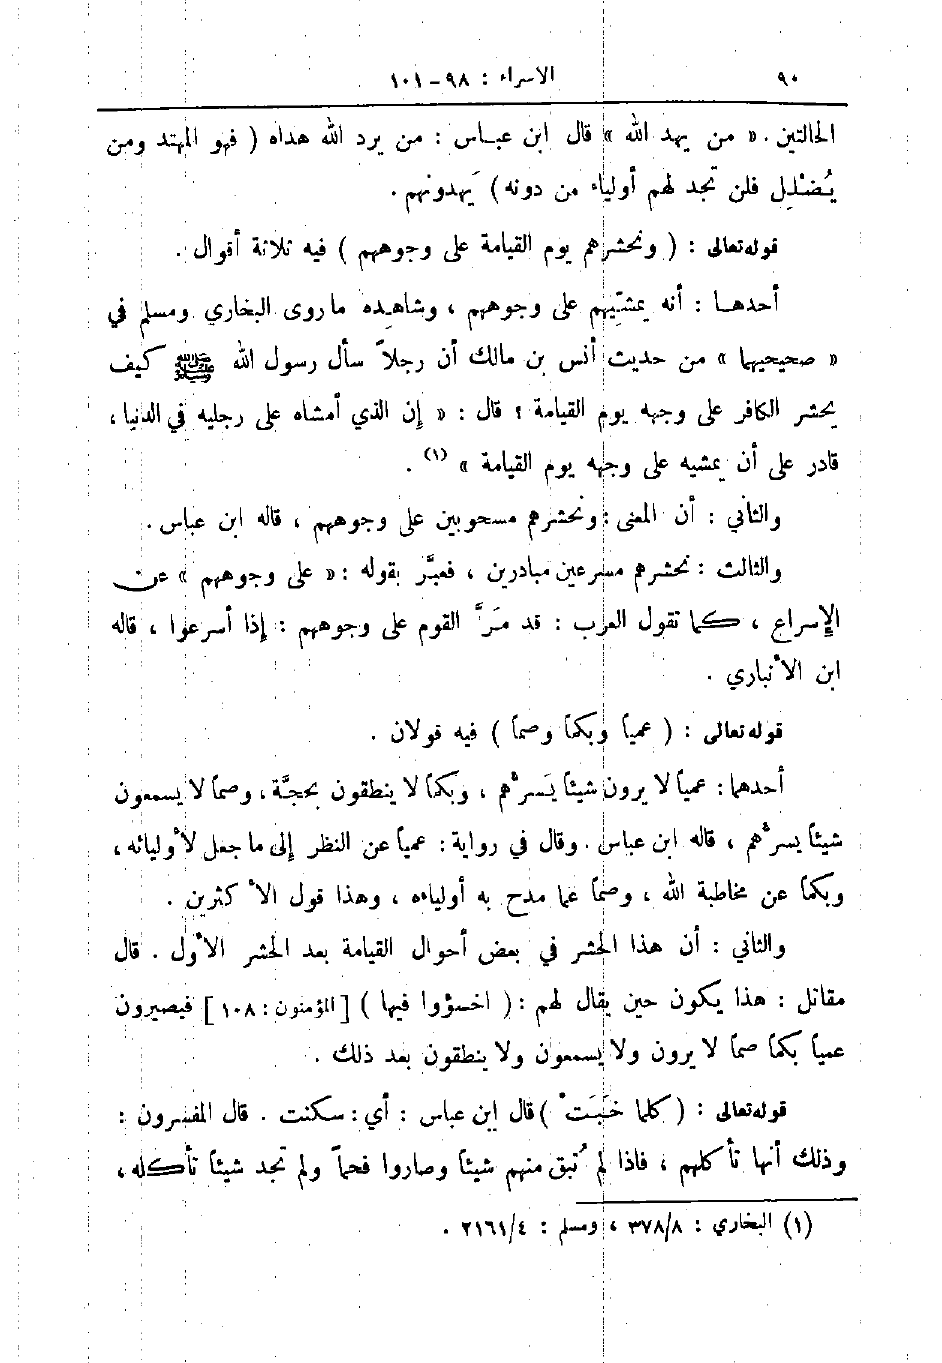 ٩٠ الاسراء : ٩٨ – ١٠١
الحالتين . « من يهد الله » قال ابن عبـاس : من يرد الله هداه ( فهو المهتد ومن
يُضْلِل فلن تجد لهم أولياء من دونه ) يَهدونهم .
قوله تعالى : ( ونحشرهم يوم القيامة على وجوههم ) فيه ثلاثة أقوال .
أحدهـا : أنه يمشّيهم على وجوههم ، وشاهِده ما روى البخاري ومسلم في
« صحيحيهما » من حديث أنس بن مالك أن رجلاً سأل رسول الله ﷺ كيف
يحشر الكافر على وجهه يوم القيامة ؟ قال : « إن الذي أمشاه على رجليه في الدنيا ،
قادر على أن يمشيه على وجهه يوم القيامة » (١) .
والثاني : أن المعنى : ونحشرهم مسحوبين على وجوههم ، قاله ابن عباس .
والثالث : نحشرهم مسرعين مبادرين ، فعبَّر بقوله : « على وجوههم » عن
الإسراع ، كما تقول العرب : قد مَرَّ القوم على وجوههم : إذا أسرعوا ، قاله
ابن الأنباري .
قوله تعالى : ( عمياً وبكماً وصماً ) فيه قولان .
أحدهما : عمياً لا يرون شيئاً يَسرُّهم ، وبكماً لا ينطقون بحجَّة ، وصماً لا يسمعون
شيئاً يسرُّهم ، قاله ابن عباس . وقال في رواية : عمياً عن النظر إلى ما جعل لأوليائه ،
وبكماً عن مخاطبة الله ، وصماً عما مدح به أولياءه ، وهذا قول الأكثرين .
والثاني : أن هذا الحشر في بعض أحوال القيامة بعد الحشر الأول . قال
مقاتل : هذا يكون حين يقال لهم : ( اخسؤوا فيها ) [ المؤمنون : ١٠٨ ] فيصيرون
عمياً بكماً صماً لا يرون ولا يسمعون ولا ينطقون بعد ذلك .
قوله تعالى : ( كلما خَبَتْ ) قال ابن عباس : أي : سكنت . قال المفسرون :
وذلك أنها تأكلهم ، فاذا لم تُبق منهم شيئاً وصاروا فحماً ولم تجد شيئاً تأكله ،
(١) البخاري : ٣٧٨/٨ ، ومسلم : ٢١٦١/٤ .